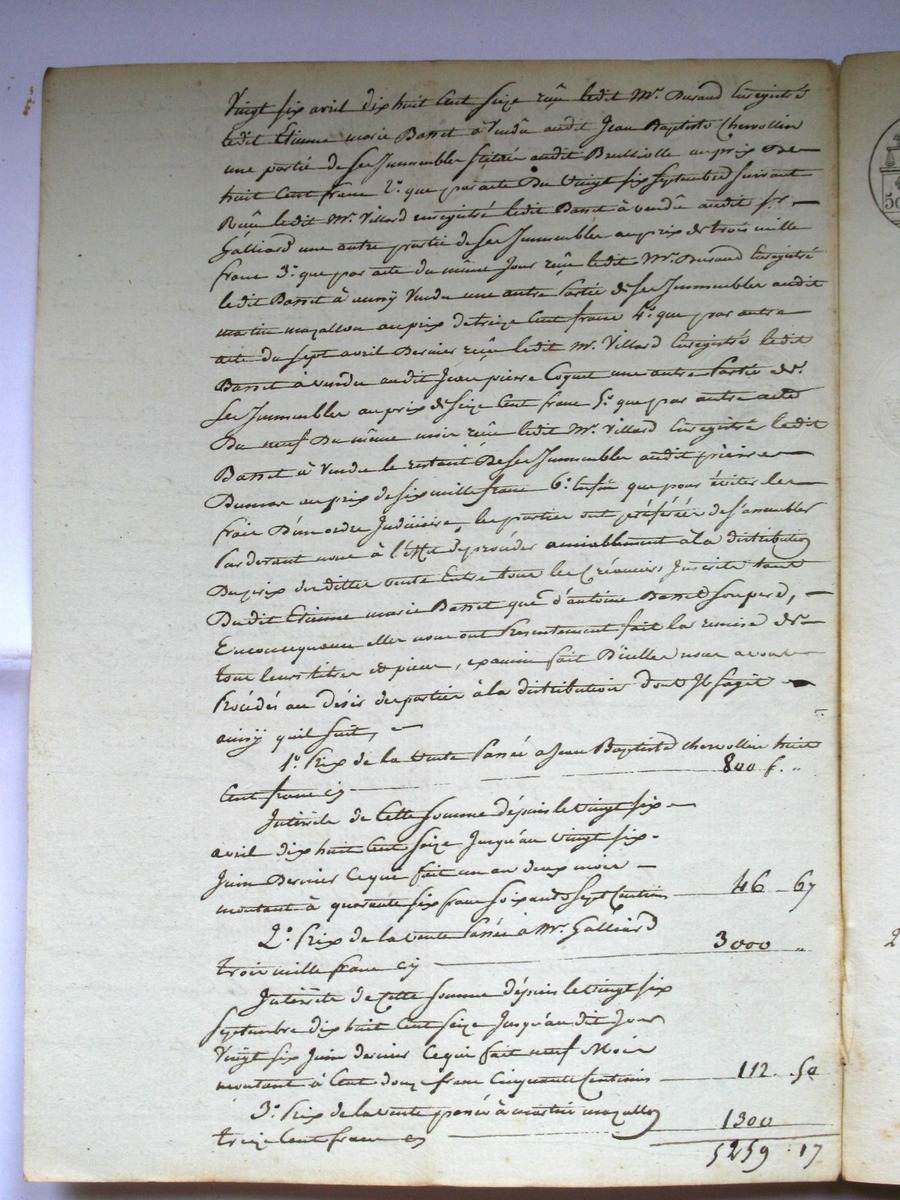 Vingt six avril dix huit Cent Seize reçu ledit Mr. Durand Enregistré
ledit Etienne marie Basset à Vendu audit Jean Baptiste Chervollin
une partie de Ses Immeubles Scitués audit au prix De
huit Cent franc 2.° que par acte Du Vingt six Septembre Suivant
Reçu ledit Mr. Villard enregistré ledit Basset à vendu audit Sr.
Galliard une autre partie de Ses Immeubles au prix de trois mille
franc 3.° que par acte du même Jour reçu ledit Mr. Durand Enregistré
ledit Basset à aussy Vendu une autre Partie de Ses Immeubles audit
martin mazallon au prix de treize Cent franc 4.° que par autre
acte du Sept avril Dernier reçu ledit Mr. Villard Enregistré ledit
Basset à vendu audit Jean pierre Coquet une autre Partie de
Ses Immeubles au prix de Seize Cent franc 5.° que par autre acte
Du neuf Du même mois reçu ledit Mr. Villard Enregistré ledit
Basset à Vendu le restant De Ses Immeubles audit pierre
Dumas au prix de six mille franc 6.° Enfin que pour éviter les
frais D'un ordre Judiciaire, les parties ont préférées de S'assembler
Pardevant nous à l'effet de procéder amiablement à la distribution
Du prix desdittes vente Entre tous les Créanciers Inscrits tant
Dudit Etienne marie Basset que d'antoine Basset Son pere,
En conséquence elles nous ont Présentement fait la remise de
tous leurs titres et pieces, examen fait D'icelles nous avons
Procédés au désir des parties à la distribution dont Il S'agit
ainsy qu'il Suit,
1.° Prix de la Vente Passée a Jean Baptiste Chervollin huit
Cent franc cy 800 f. "
Intérêts de Cette Somme dépuis le vingt six
avril dix huit Cent Seize Jusqu'au vingt six
Juin Dernier Ce qui fait un an deux mois
montant à quarante six franc Soixante Sept Centim 46 67
2.° Prix de la vente Passée à Mr. Galliard
trois mille franc cy 3000 "
Intérêts de Cette Somme dépuis le vingt six
Septembre dix huit Cent Seize Jusqu'au dit Jour
Vingt six Juin dernier Ce qui fait neuf Mois
montant à Cent douze franc Cinquante Centimes 112. 50
3.° Prix de la vente passée à martin mazallon
treize Cent franc cy 1300
5259. 17
50
2